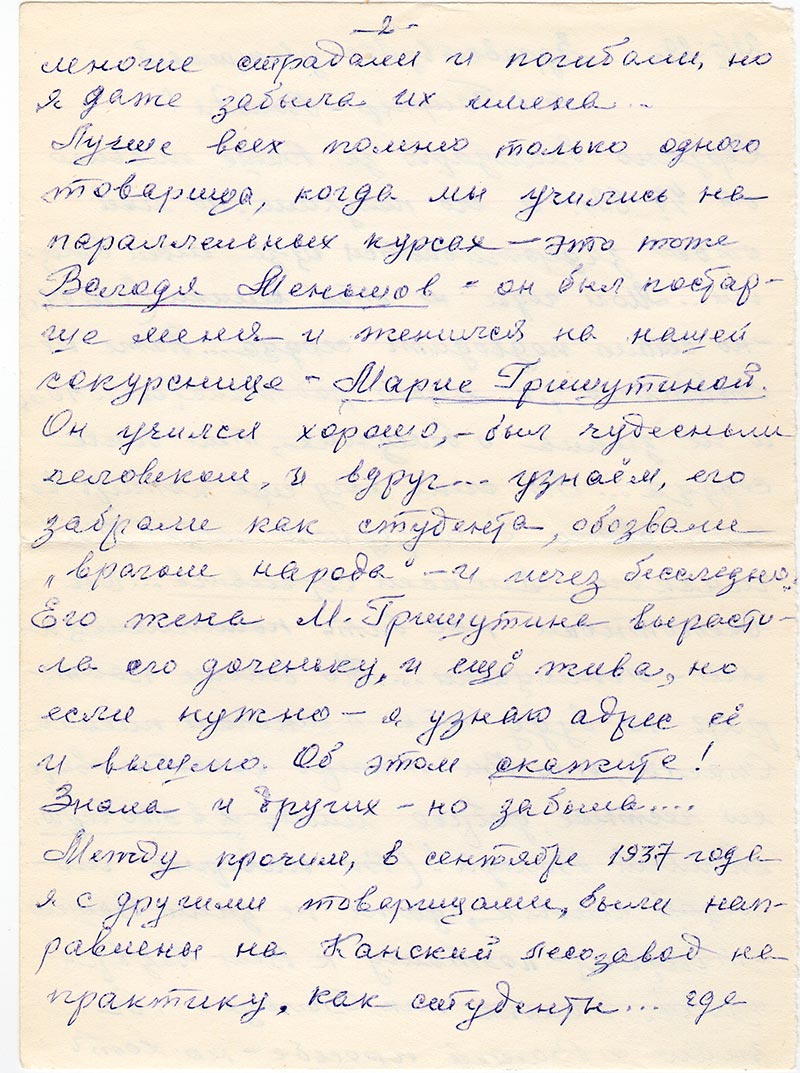 -2-
многие страдали и погибали, но
я даже забыла их имена...
Лучше всех помню только одного
товарища, когда мы учились на
параллельных курсах – это тоже
Володя Меньшов - он был постар-
ше меня и женился на нашей
сокурснице - Марие Гришутиной.
Он учился хорошо, - был чудесным
человеком, и вдруг... узнаём, его
забрали как студента, обозвали
„врагом народа" – и исчез бесследно.
Его жена М. Гришутина вырасти-
ла его доченьку, и ещё жива, но
если нужно – я узнаю адрес её
и вышлю. Об этом скажите!
Знала и других – но забыла....
Между прочим, в сентябре 1937 года
я с другими товарищами, были нап-
равлены на Канский лесозавод на
практику, как студенты... где